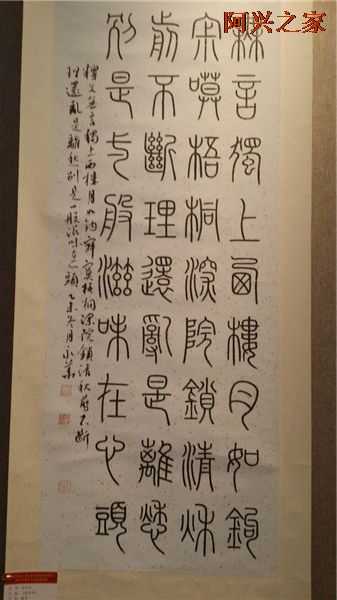 阿兴之家
無言獨上西樓月如鉤
寂寞梧桐深院鎖清秋
剪不斷理還亂是離愁
別是一般滋味在心頭
釋文無言獨上西樓月如鉤寂寞梧桐深院鎖清秋剪不斷
理還亂是離愁別是一般滋味在心頭乙未冬月永華